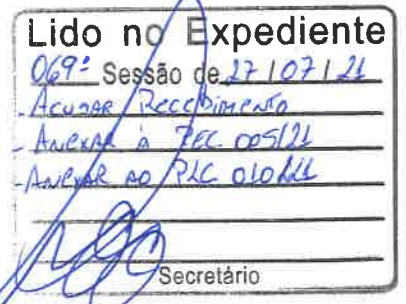 Lido no Expediente
069ª Sessão de 27/07/21
- Acusar Recebimento
- Anexar à PEC 005/21
- Anexar ao PLC 010
Secretário